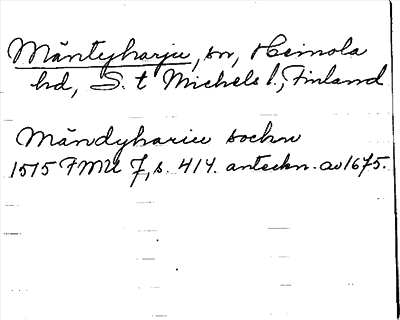 Mäntyharju, sn, Heinola
hd, S. t Michels l., Finland
Mändyhariu sochn
1515 FMU 7, s. 414. anteckn. av 1675.